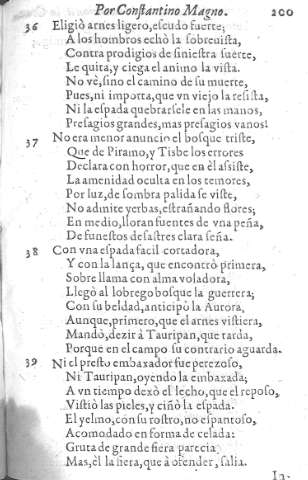 Por Constantino Magno. 200
36 Eligiò arnes ligero, escudo fuerte;
A los hombros echò la sobrevista,
Contra prodigios de siniestra suerte,
Le quita, y ciega el animo la vista.
No vè, sino el camino de su muerte,
Pues, ni importa, que vn viejo la resista,
Ni la espada quebrarsele en las manos,
Presagios grandes, mas presagios vanos!
37 No era menor anuncio el bosque triste,
Que de Piramo, y Tisbe los errores
Declara con horror, que en èl assiste,
La amenidad oculta en los temores,
Por luz, de sombra palida se viste,
No admite yerbas, estrañando flores;
En medio, lloran fuentes de vna peña,
De funestos desastres clara seña.
38 Con vna espada facil cortadora,
Y con la lança, que encontrò primera,
Sobre llama con alma voladora,
Llegò al lobrego bosque la guerrera;
Con su beldad, anticipò la Aurora,
Aunque, primero, que el arnes vistiera,
Mandò, dezir à Tauripan, que tarda,
Porque en el campo su contrario aguarda.
39 Ni el presto embaxador fue perezoso,
Ni Tauripan, oyendo la embaxada;
A vn tiempo dexò el lecho, que el reposo,
Vistiò las pieles, y ciñò la espada.
El yelmo, con su rostro, no espantoso,
Acomodado en forma de celada:
Gruta de grande fiera parecia
Mas, èl la fiera, que à ofender, salia.